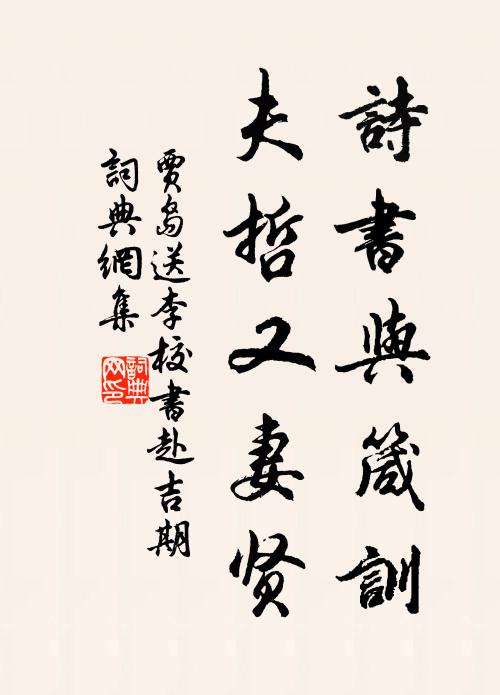 詩書與箴訓
夫哲又妻贤
贾島送李校書赴吉期
詞典網集
詞典网印